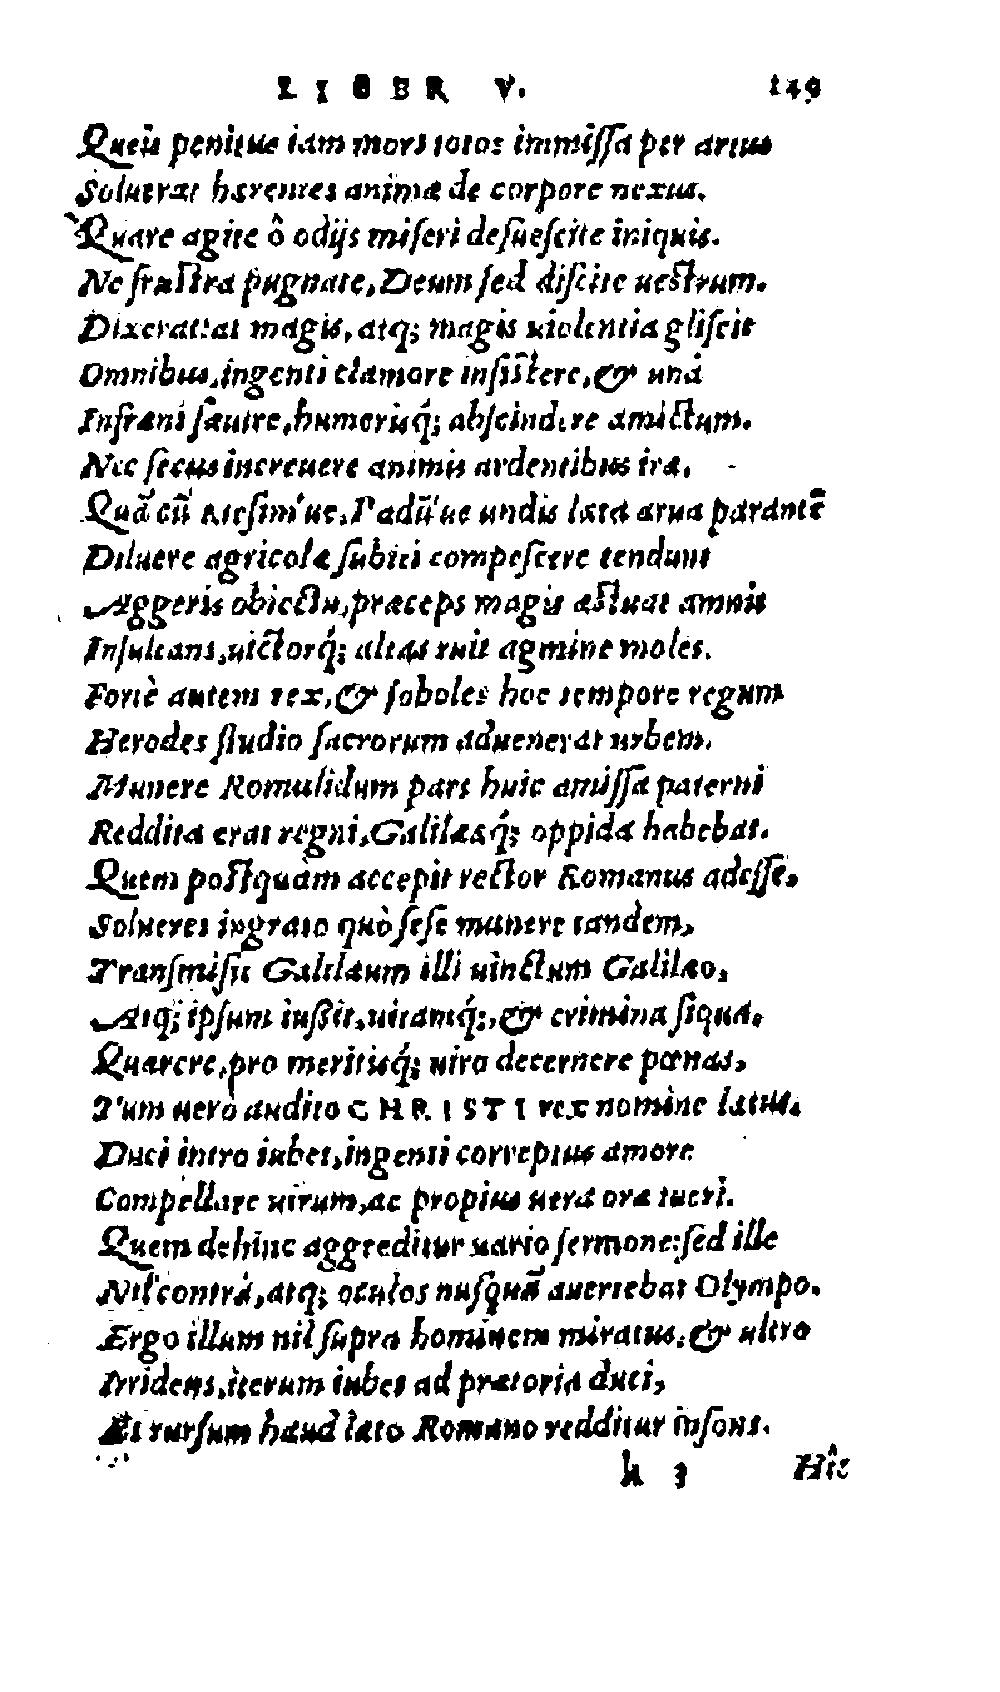 LIBER V. 149
Quẽis penitus iam mors totos immissa per artus
Soluerat hærentes animæ de corpore nexus.
Quare agite ô odijs miseri desuescite iniquis.
Ne frustra pugnate, Deum sed discite uestrum.
Dixerat: at magis, atq; magis uiolentia gliscit
Omnibus, ingenti clamore insistere, & unà
Infrani sæuire, humerisq́; abscindere amictum.
Nec secus increuere animis ardentibus iræ.
Quã cũ Atesim'ue, Padũ'ue undis lata arua parantẽ
Diluere agricolæ subiti compescere tendunt
Aggeris obiectu, præceps magis æstuat amnis
Insultans, uictorq́; altas ruit agmine moles.
Fortè autem rex, & soboles hoc tempore regum
Herodes studio sacrorum aduenerat urbem.
Munere Romulidum pars huic amissa paterni
Reddita erat regni, Galilæaq́; oppida habebat.
Quem postquàm accepit rector Romanus adesse,
Solueret ingrato quò sese munere tandem,
Transmisit Galilæum illi uinctum Galilæo,
Atq; ipsum iußit, uitamq́;, & crimina siqua.
Quærere, pro meritisq́; uiro decernere pœnas,
Tum uerò audito CHRISTI rex nomine lætus.
Duci intro iubet, ingenti correptus amore
Compellare uirum, ac propius uera ora tueri.
Quem dehinc aggreditur uario sermone: sed ille
Nil contrà, atq; oculos nusquã auertebat Olympo.
Ergo illum nil supra hominem miratus, & ultro
Irridens, iterum iubet ad prætoria duci,
Et rursum haud læto Romano redditur insons.
k 3 Hîc